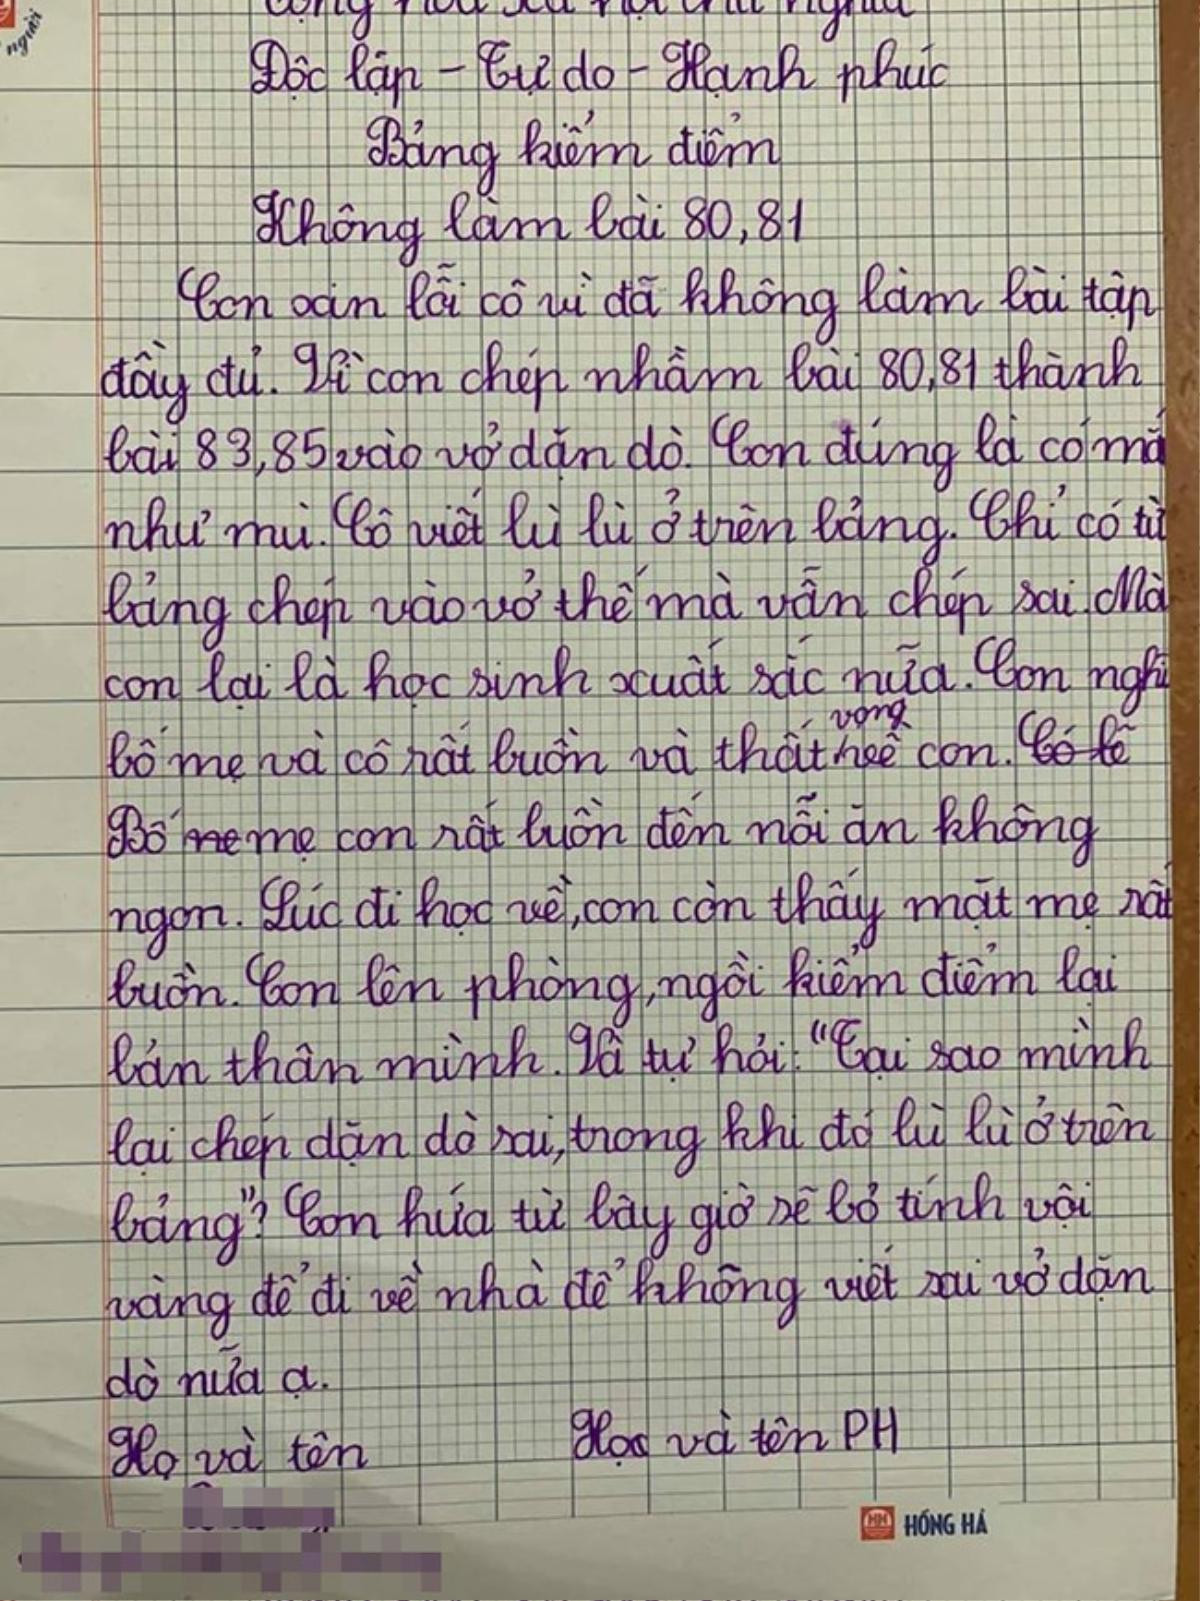 người
Cộng hòa xã hội chủ nghĩa
Độc lập - Tự do - Hạnh phúc
Bảng kiểm điểm
Không làm bài 80,81
Con xin lỗi cô vì đã không làm bài tập
đầy đủ. Vì con chép nhầm bài 80,81 thành
bài 83,85 vào vở dặn dò. Con đúng là có mắ
như mù. Cô viết lù lù ở trên bảng. Chỉ có từ
bảng chép vào vở thế mà vẫn chép sai. Mà
con lại là học sinh xuất sắc nữa. Con nghĩ
bố mẹ và cô rất buồn và thất vọng về con. Có lẽ
Bố me mẹ con rất buồn đến nỗi ăn không
ngon. Lúc đi học về, con còn thấy mặt mẹ rất
buồn. Con lên phòng, ngồi kiểm điểm lại
bản thân mình. Và tự hỏi: "Tại sao mình
lại chép dặn dò sai, trong khi đó lù lù ở trên
bảng"? Con hứa từ bây giờ sẽ bỏ tính vội
vàng để đi về nhà để không viết sai vở dặn
dò nữa ạ.
Họ và tên Họ và tên PH
HỒNG HÀ